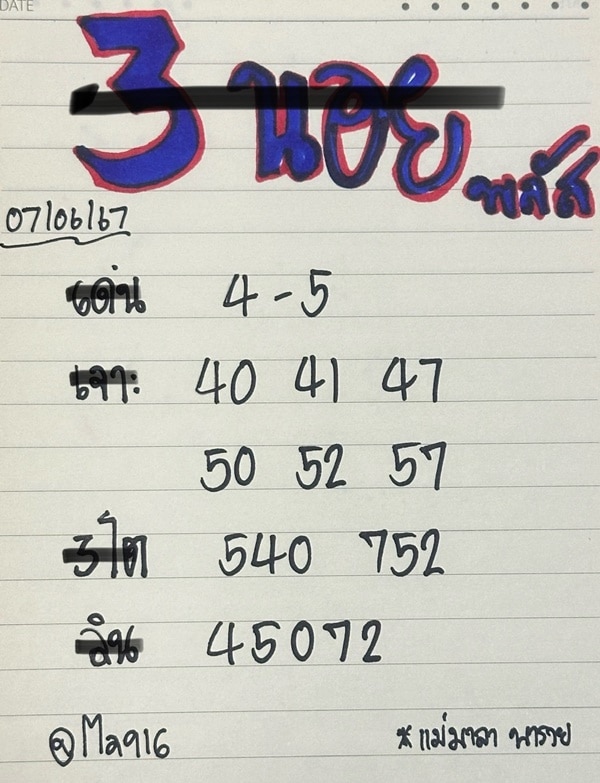 DATE
3 นอย
พลัส
07/06/67
เด่น 4-5
เจาะ 40 41 47
50 52 57
3 โต 540 752
วิน 45072
@Ma916
*แม่มาลา พารวย